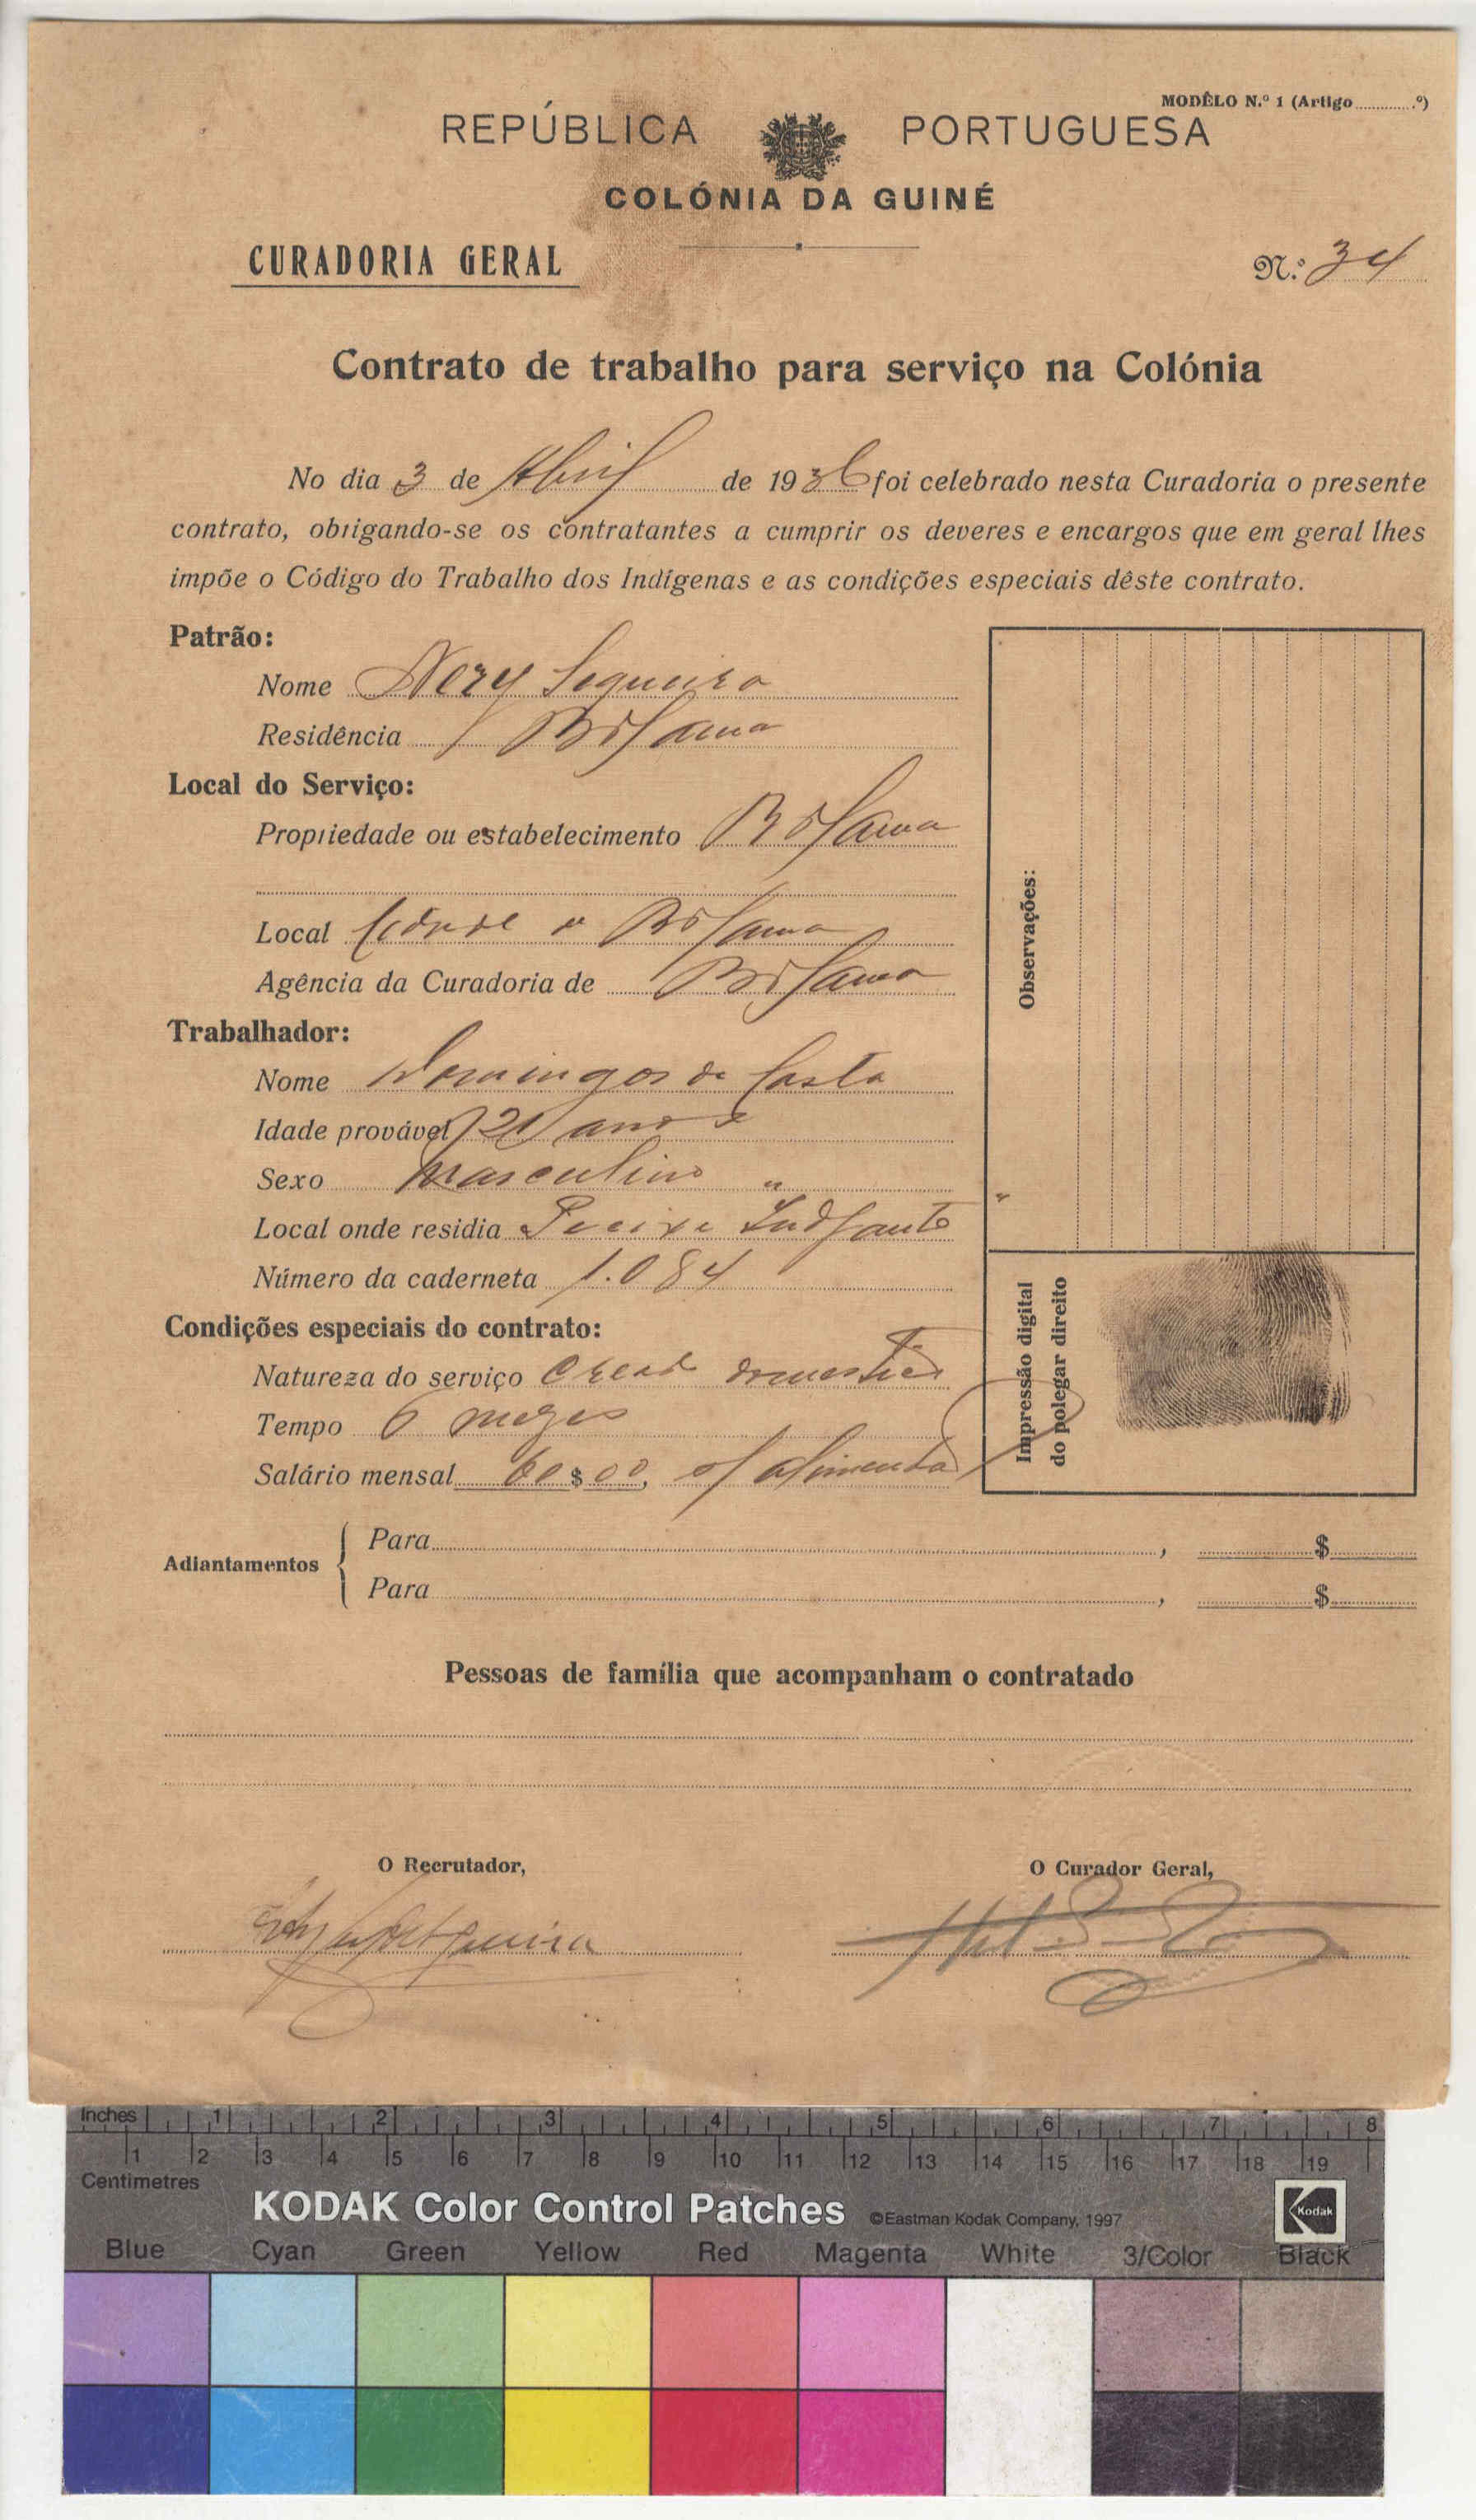 MODÊLO N.º 1 (Artigo ............º)
REPÚBLICA PORTUGUESA
COLÓNIA DA GUINÉ
CURADORIA GERAL
N.º 34
Contrato de trabalho para serviço na Colónia
No dia 3 de Abril de 1936 foi celebrado nesta Curadoria o presente
contrato, obrigando-se os contratantes a cumprir os deveres e encargos que em geral lhes
impõe o Código do Trabalho dos Indígenas e as condições especiais dêste contrato.
Patrão:
Nome Nery Sequeira
Residência Bolama
Local do Serviço:
Propriedade ou estabelecimento Bolama
Local Cidade de Bolama
Agência da Curadoria de Bolama
Trabalhador:
Nome Domingos da Costa
Idade provável 21 anos
Sexo Masculino
Local onde residia
Número da caderneta 1.084
Condições especiais do contrato:
Natureza do serviço Cread domestico
Tempo 6 mezes
Salário mensal 60$00, s/ alimenta
Observações:
Impressão digital
do polegar direito
Adiantamentos
Para , $
Para , $
Pessoas de família que acompanham o contratado
O Recrutador,
O Curador Geral,
Inches 1 2 3 4 5 6 7 8
1 2 3 4 5 6 7 8 9 10 11 12 13 14 15 16 17 18 19
Centimetres
KODAK Color Control Patches ©Eastman Kodak Company, 1997
Kodak
Blue Cyan Green Yellow Red Magenta White 3/Color Black